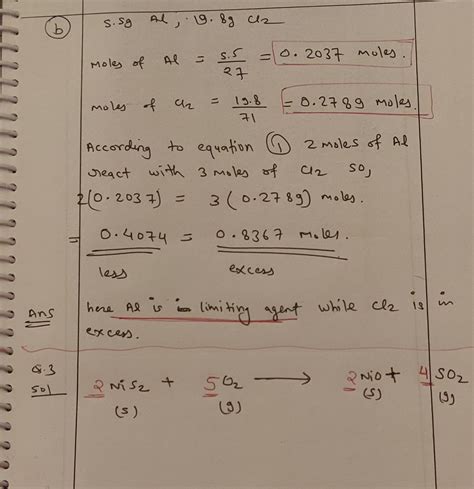 (b) 5.5g Al, 19.8g Cl2
Moles of Al = 5.5/27 = 0.2037 moles.
moles of Cl2 = 19.8/71 = 0.2789 moles.
According to equation ① 2 moles of Al
react with 3 moles of Cl2 so,
2(0.2037) = 3(0.2789) moles.
= 0.4074 = 0.8367 moles.
less excess
Ans here Al is limiting agent while Cl2 is in
excess.
Q.3
Sol 2NiS2 + 5O2 ⟶ 2NiO + 4SO2
(s) (g) (s) (g)